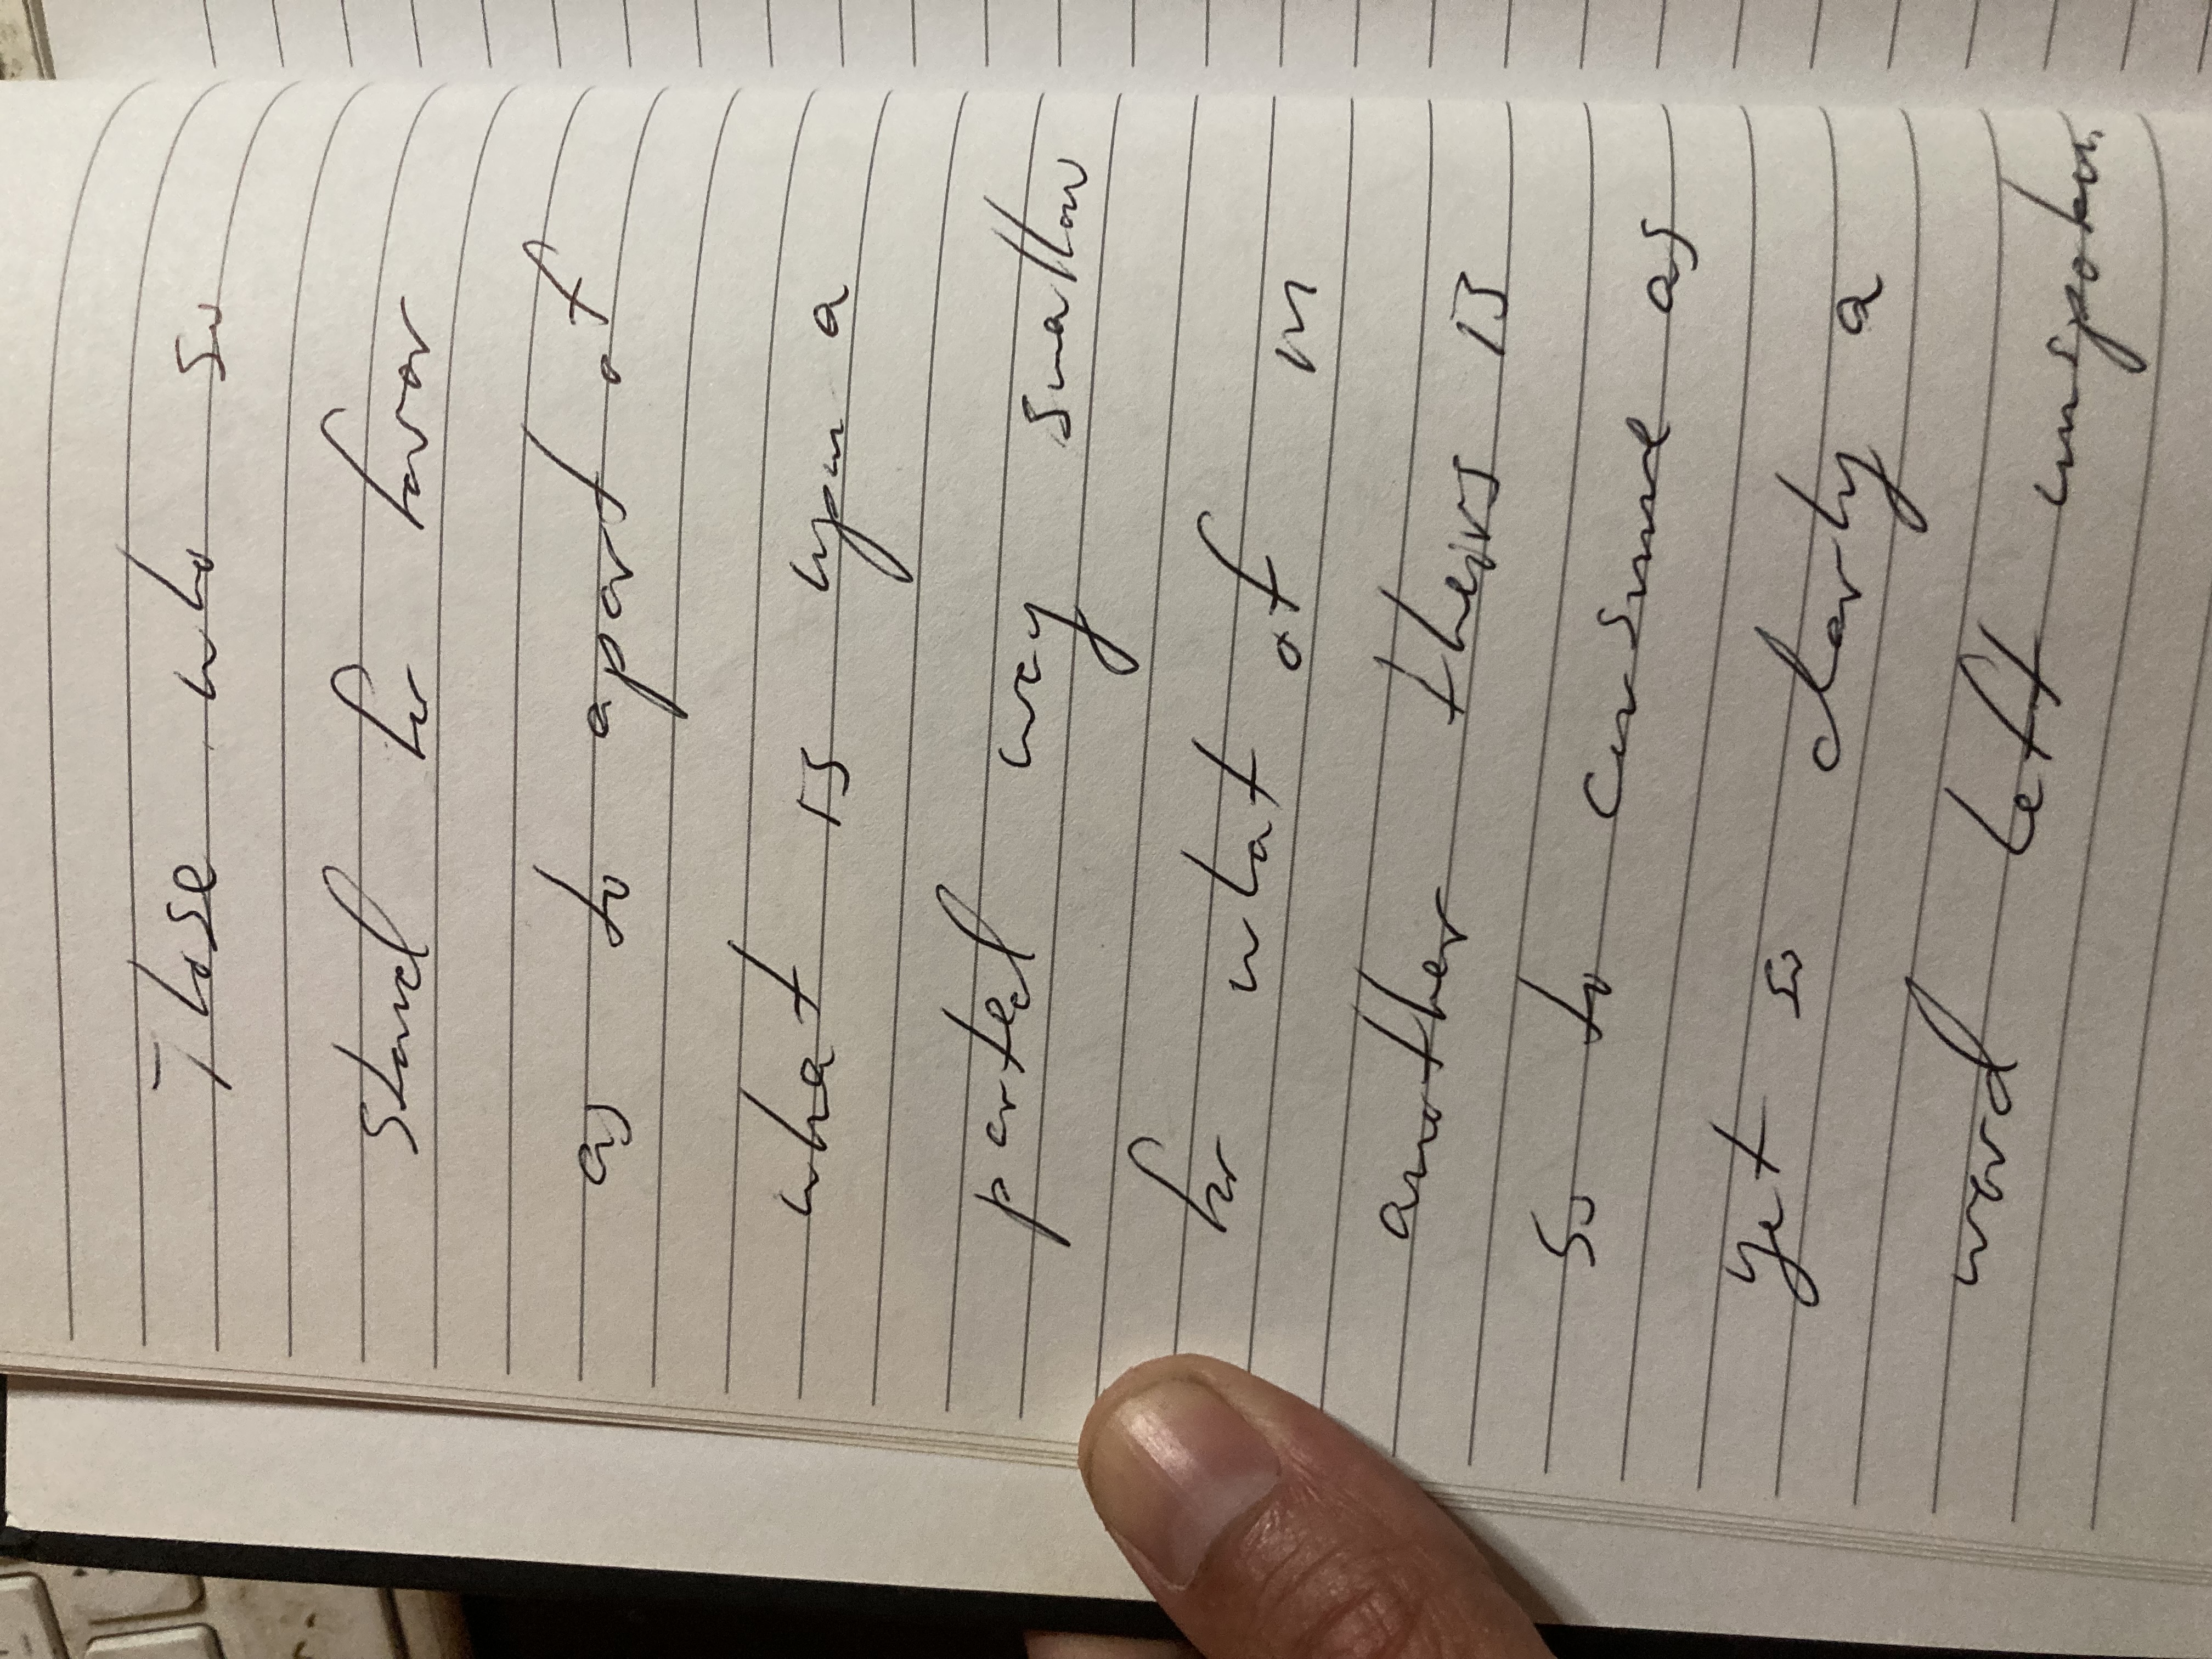 Those who so
stand for favor
as to apart of
what is upon a
parted way swallow
for what of in
another theirs is
so to consume as
yet so clarly a
word left unspoken.